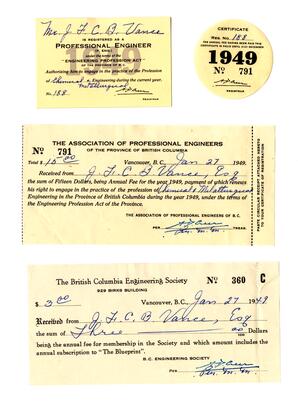 Mr. J. F. C. B. Vance
IS REGISTERED AS A
PROFESSIONAL ENGINEER
(P. ENG.)
UNDER THE TERMS OF THE
"ENGINEERING PROFESSION ACT"
OF THE PROVINCE OF B.C.
Authorizing him to engage in the practice of the Profession
Chemical & Engineering during the current year.
Metallurgical
No. 188
REGISTRAR
1949
CERTIFICATE
REG. No. 188
THE ANNUAL FEE HAVING BEEN PAID THIS
CERTIFICATE IS VALID UNTIL 31ST DECEMBER
1949
No 791
REGISTRAR
THE ASSOCIATION OF PROFESSIONAL ENGINEERS
No 791 OF THE PROVINCE OF BRITISH COLUMBIA
Total $ 15.00 Vancouver, B.C., Jan 27 1949.
Received from J. F. C. B. Vance, Esq
the sum of Fifteen Dollars, being Annual Fee for the year 1949, payment of which renews
his right to engage in the practice of the profession of Chemical & Metallurgical
Engineering in the Province of British Columbia during the year 1949, under the terms of the
Engineering Profession Act of the Province.
THE ASSOCIATION OF PROFESSIONAL ENGINEERS OF B.C.
PER
TREAS.
PASTE CIRCULAR RECEIPT ATTACHED HERETO
TO YOUR CERTIFICATE OF REGISTRATION
The British Columbia Engineering Society No 360 C
929 BIRKS BUILDING
$ 3.00 Vancouver, B.C., Jan 27 1949
Received from J. F. C. B. Vance, Esq
the sum of Three 00 Dollars
being the annual fee for membership in the Society and which amount includes the
annual subscription to "The Blueprint".
B.C. ENGINEERING SOCIETY
PER